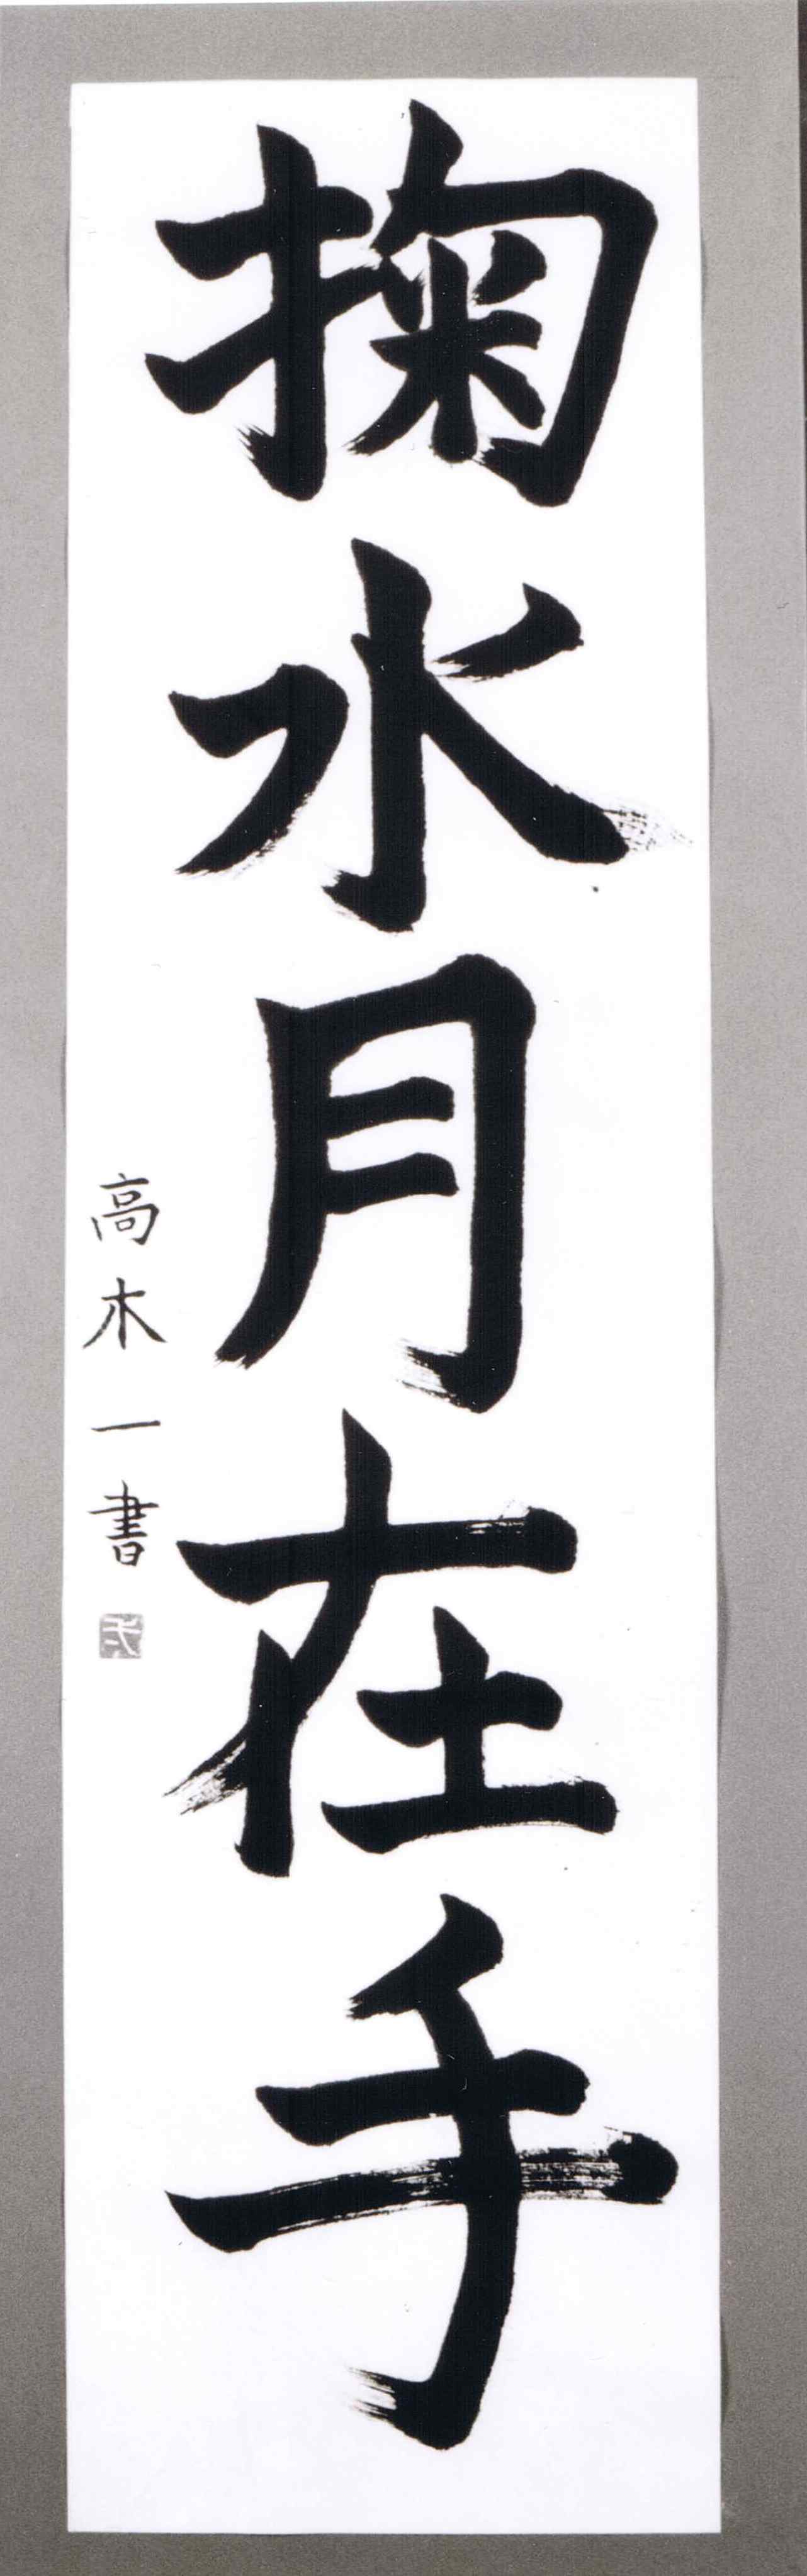 掬水月在手
高木一書